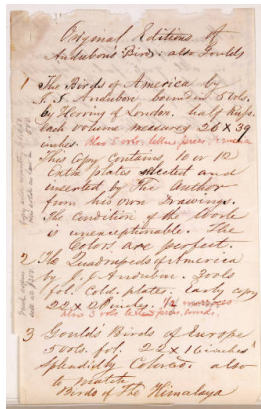 Original Editions of
Audubon's Birds: also Goulds
1 The Birds of America by
J. J. Audubon bound in 5 vols.
by Herring of London. half Russ.
Each volume measures 26 X 39
inches. Also 5 vols. letter press
This Copy Contains 10 or 12
Extra plates selected and
inserted by The Author
from his own Drawings.
The Condition of the Work
is unexceptionable. The
Colors are perfect.
2 The Quadrupeds of America
by J. J. Audubon. 3 vols
fol. Cold. plates. Early copy
22 X 28 inches. 1/2 morocco
also 3 vols letter press.
3 Gould's Birds of Europe
5 vols. fol. 22 X 16 inches
Splendidly Colored. also
to match
Birds of The Himalaya